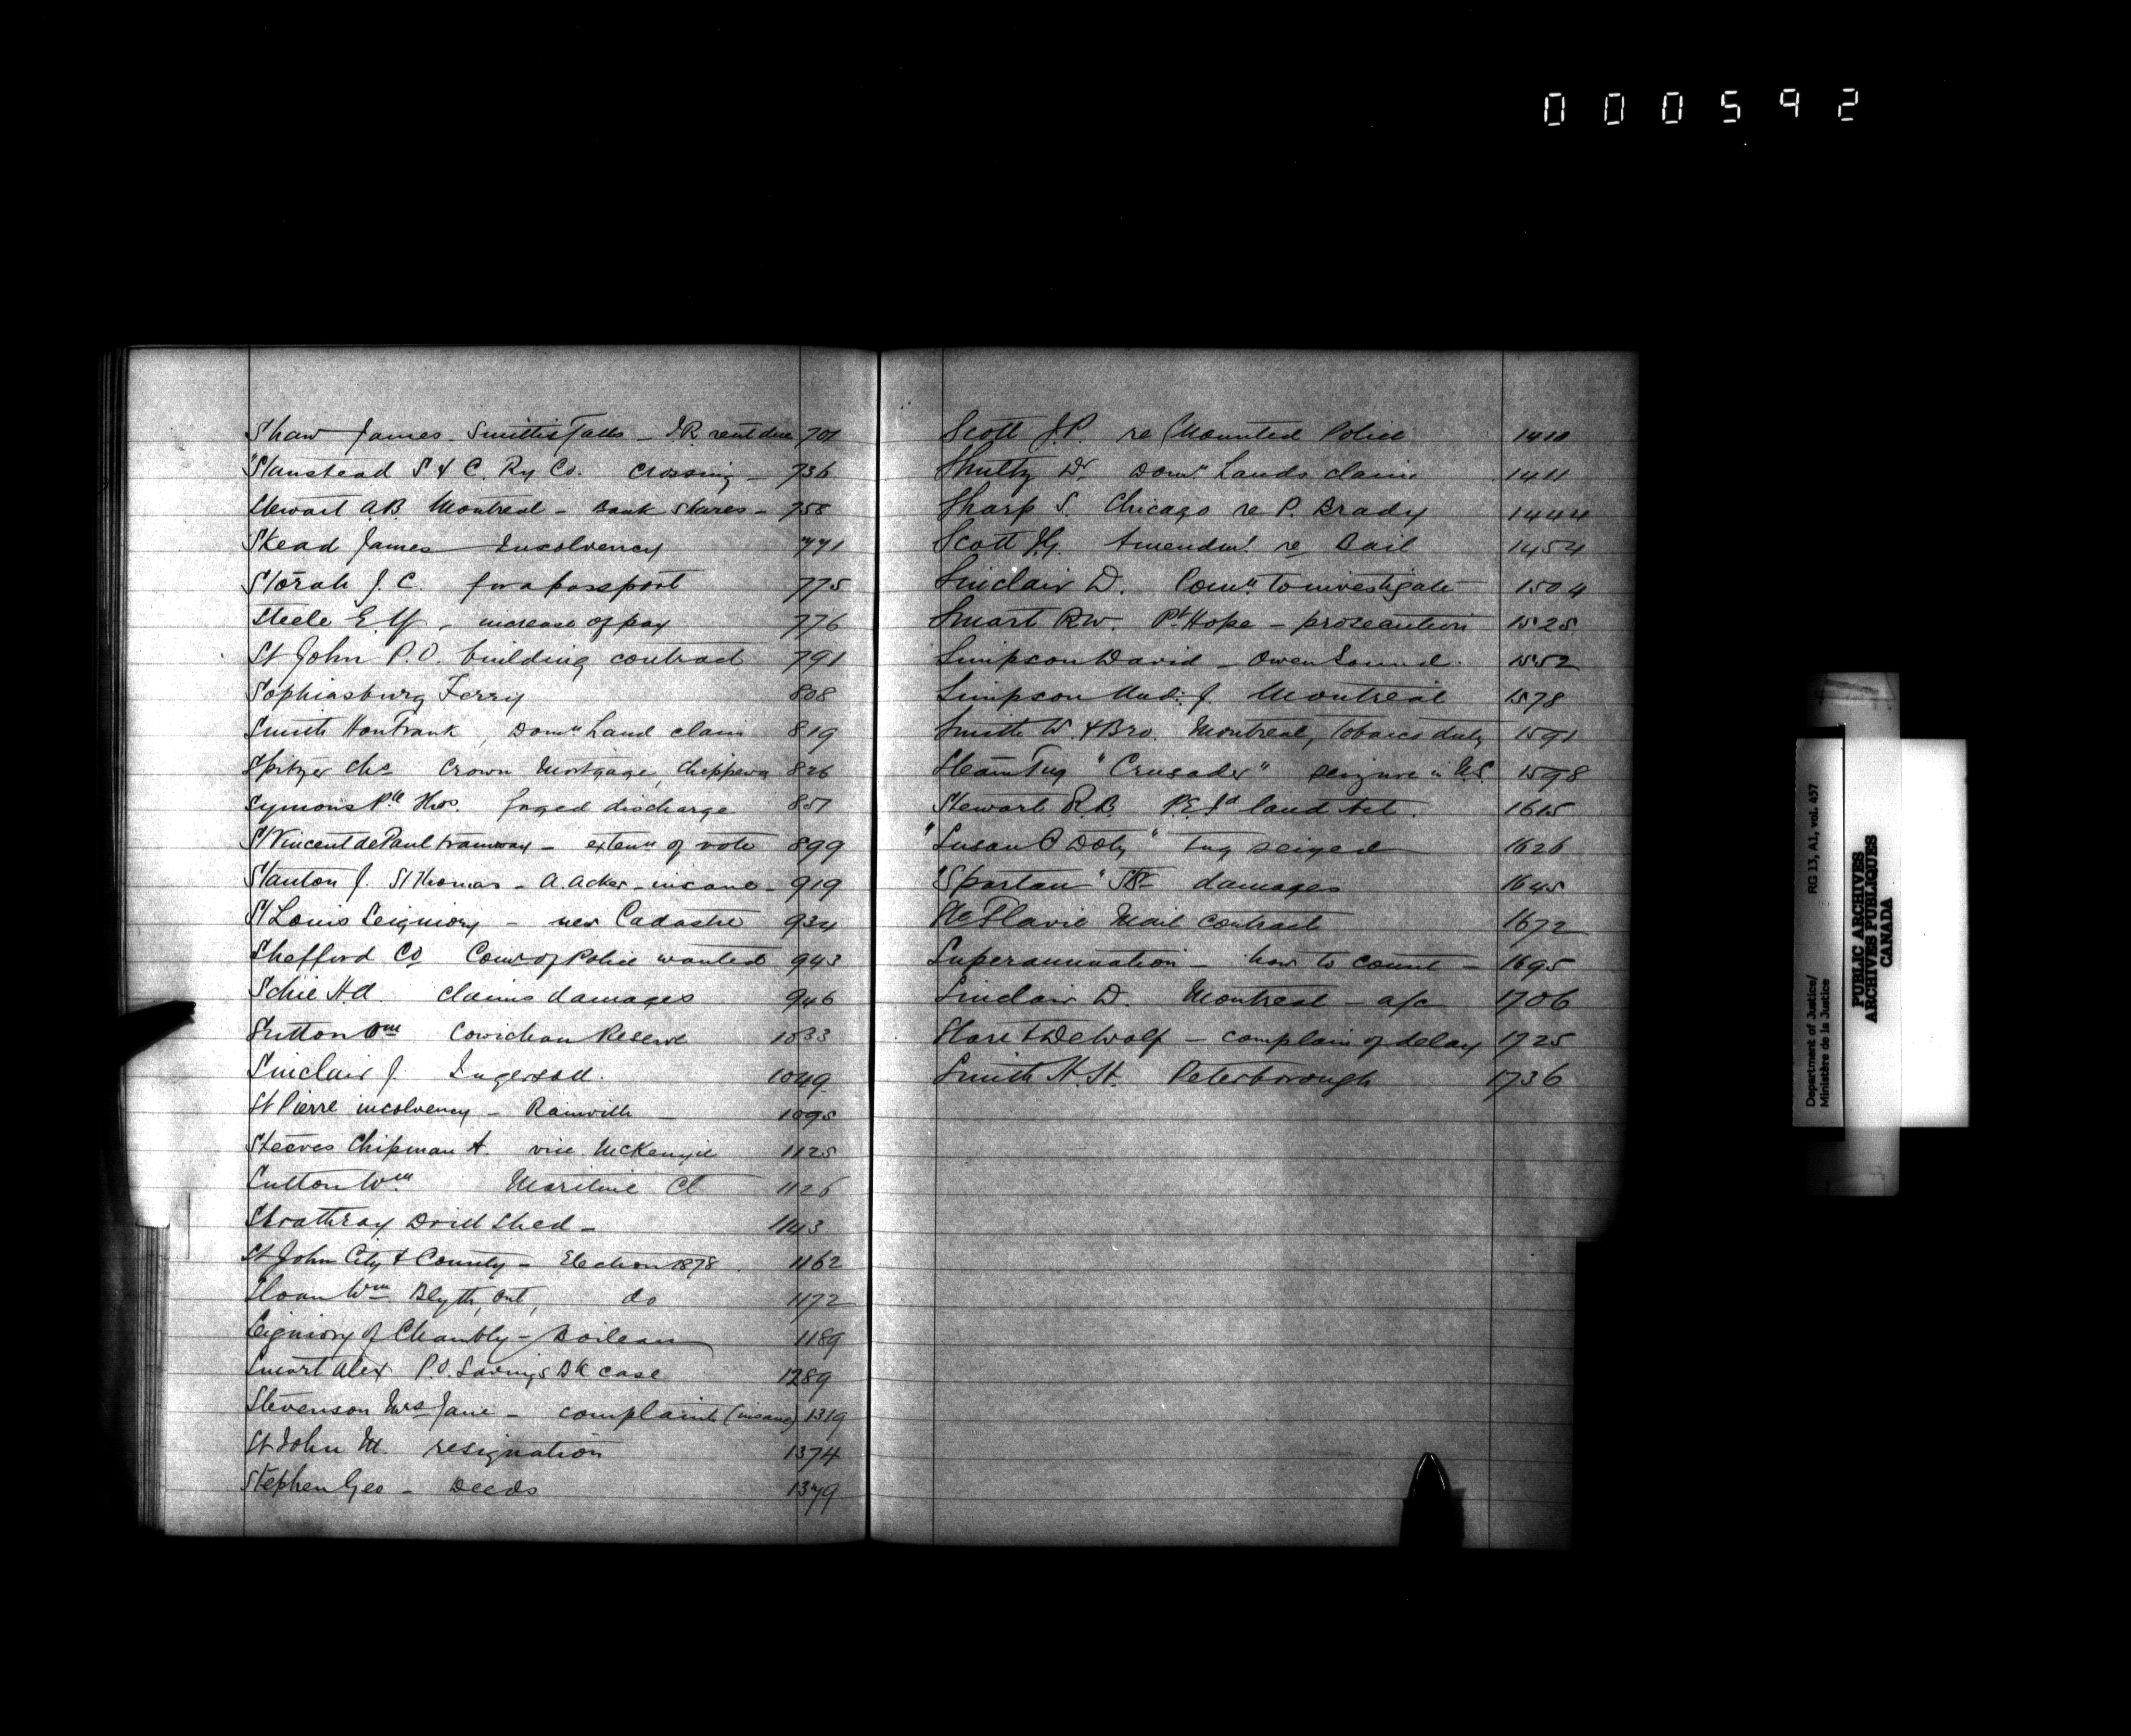 000592
Shaw James. Smiths Falls _ I.R. rent due 701
Stanstead S & C. Ry Co. Crossing _ 736
Stewart A.B. Montreal _ Bank Shares _ 758
Skead James Insolvency 771
Storah J. C. for a passport 775
Steele E. increase of pay 776
St John P.O. building contract 791
Sophiasburg Ferry 808
Smith Hon Frank, Domn Land claim 819
Spitzer Chs Crown Mortgage, Chippewa 826
Symons Pte Thos. forged discharge 851
St Vincent de Paul tramway _ extenn of vote 899
Stanton J. St Thomas _ A. Acker _ insane _ 919
St Louis Seigniory _ new Cadastre 934
Shefford Co Comr of Police wanted 943
Schie H.A. claims damages 946
Sutton Wm Cowichan Reserve 1033
Sinclair J. Ingersoll. 1049
St Pierre insolvency _ Rainville 1095
Steeves Chipman A. vice McKenzie 1125
Sutton Wm Maritime Ct 1126
Strathray Drill Shed _ 1143
St John City & County _ Election 1878. 1162
Sloan Wm Blyth, Ont, do 1172
Seigniory of Chambly _ Boileau 1189
Smart Alex P.O. Savings Bk case 1289
Stevenson Mrs Jane _ complaint (insane) 1319
St John M. resignation 1374
Stephen Geo _ Deeds 1379
Scott J.P. re Mounted Police 1410
Shultz Dr Domn Lands claim 1411
Sharp S. Chicago re P. Brady 1444
Scott J.G. Amendmt re Bail 1454
Sinclair D. Comn to investigate 1504
Smart R.W. Pt Hope _ prosecution 1525
Simpson David _ Owen Sound. 1552
Simpson J. Montreal 1578
Smith W. & Bro. Montreal, tobacco duty 1591
Steam Tug "Crusader" seizure in U.S. 1598
Stewart R.B. P.E.Id land Act. 1615
"Susan C Doty" tug seized 1626
"Spartan" Str damages 1645
Ste Flavie Mail Contract 1672
Superannuation _ how to count _ 1695
Sinclair D. Montreal _ a/c 1706
Starr & DeWolf _ complain of delay 1725
Smith H.H. Peterborough 1736
Department of Justice/ RG 13, A1, vol. 457
Ministère de la Justice
PUBLIC ARCHIVES
ARCHIVES PUBLIQUES
CANADA